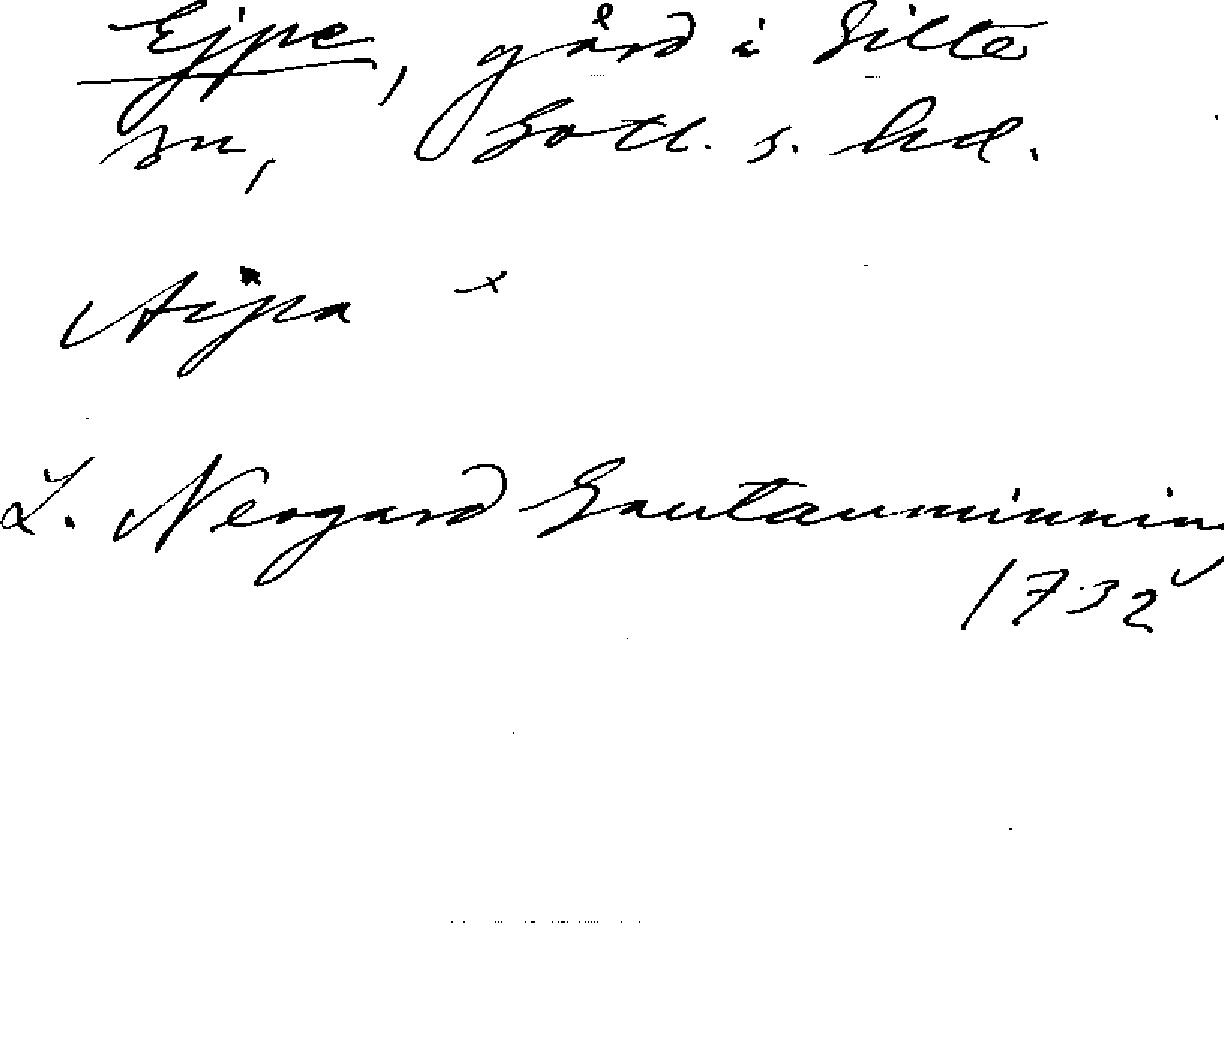 Ejpe, gård i Silte
sn, Gotl. s. hd.
Aipa x
L. Neogard Gautauminnin
1732